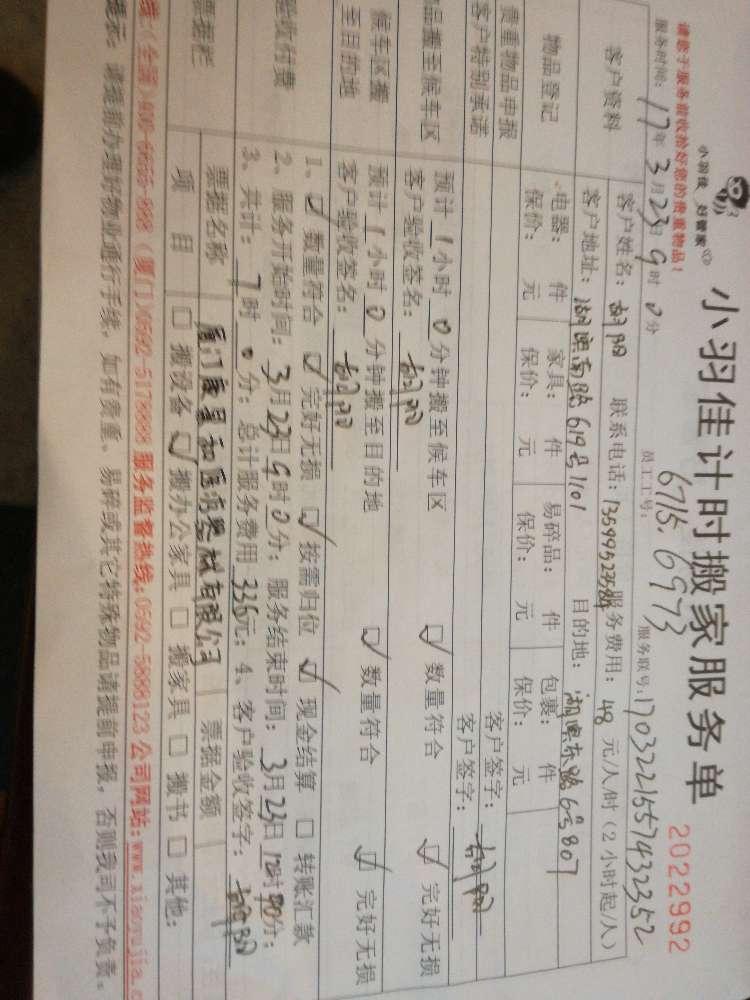 小羽佳 好管家
小羽佳计时搬家服务单
2022992
请您于服务前收拾好您的贵重物品!
6715.6973
服务时间: 17年3月23日9时0分 员工工号: 服务联号: 1703221557432352
客户资料
客户姓名: 联系电话: 服务费用: 48 元/人/时(2小时起/人)
客户地址: 湖滨南路619号1101 目的地: 湖滨东路6号807
物品登记
电器: 件 家具: 件 易碎品: 件 包裹: 件
保价: 元 保价: 元 保价: 元 保价: 元
贵重物品申报 客户签字:
客户特别承诺 客户签字:
品搬至候车区
预计1小时0分钟搬至候车区 数量符合 完好无损
客户验收签名:
候车区搬至目的地
预计1小时0分钟搬至目的地 数量符合 完好无损
客户验收签名:
验收付费
1、数量符合 完好无损 按需归位 现金结算 转账汇款
2、服务开始时间: 3月23日9时0分; 服务结束时间: 3月23日12时30分;
3、共计: 7时0分; 总计服务费用 336元; 4、客户验收签字:
票据栏
票据名称 厦门 医疗器械有限公司 票据金额
项目 搬设备 搬办公家具 搬家具 搬书 其他:
线:(全国)400-6655-888 (厦门)0592-5178888 服务监督热线:0592-5888123 公司网站:www.xiaoyujia.c
提示: 请提前办理好物业通行手续, 如有贵重、易碎或其它特殊物品请提前申报, 否则我司不予负责。